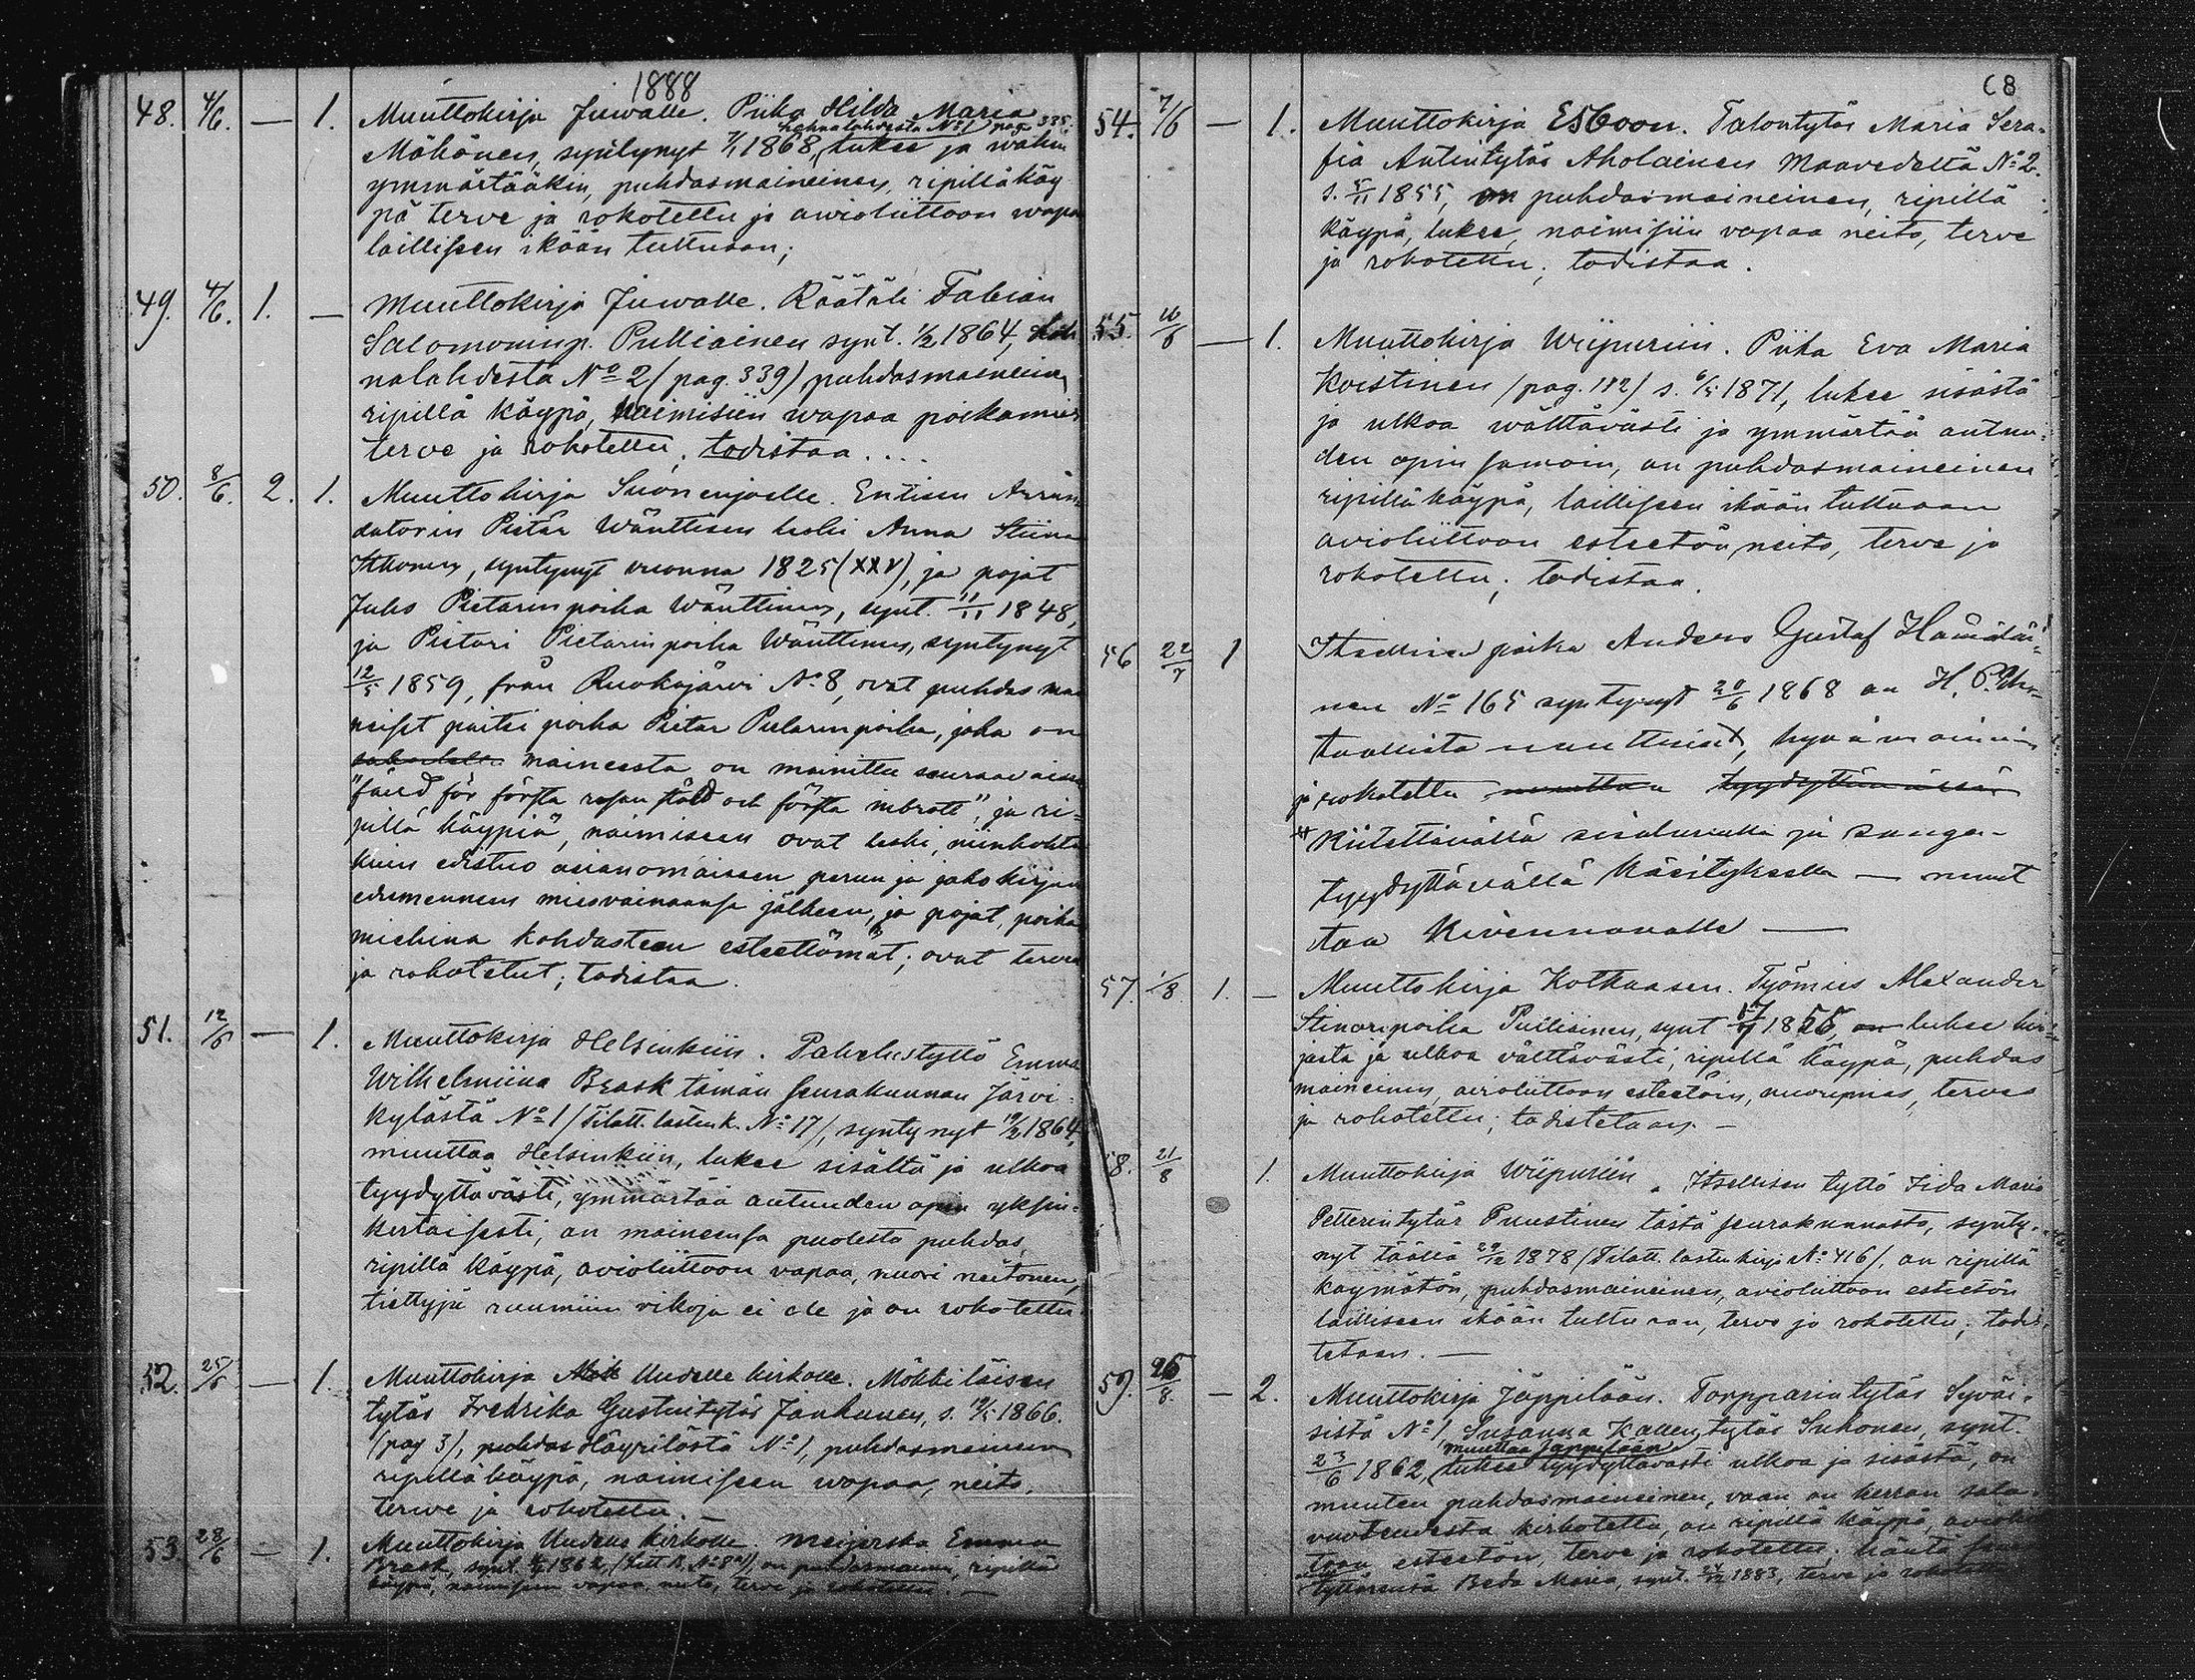 1888
48. 4/6. — 1. Muuttokirja Juwalle. Piika Hilda Maria
hahnalahdesta No 1 pag 335.
Möhönen, syntynyt 7/1 1868, lukee ja wähin
ymmärtääkin, puhdasmaineinen, ripillä käy
pä terve ja rokotettu ja awioliittoon wapa
lailliseen ikään tultuaan;
49. 4/6. 1. — Muuttokirja Juwalle. Räätäli Fabian
Salomoninp. Pulliainen synt. 1/2 1864,
nalahdesta No 2 (pag. 339) puhdasmaineine
ripillä käypä, naimisiin wapaa poikamies
terve ja rokotettu, todistaa....
50. 8/6. 2. 1. Muuttokirja Suonenjoelle. Entisen Arrün
datorin Pietär Wänttisen leski Anna Stiina
Ikkonen, syntynyt vuonna 1825 (XXV), ja pojat
Juho Pietarinpoika Wänttinen, synt. 11/11 1848,
ja Pietari Pietarinpoika Wänttinen, syntynyt
12/5 1859, från Ruokojärvi No 8, ovat puhdas mai
neiset paitsi poika Pietar Pietarinpoika, joka on
maineesta on mainittu seuraavaisen
"fäud för första resan stöld och första inbrott", ja ri=
pillä käypiä, naimiseen ovat leski, niinkohta
kuin edistuo asianomaisen perun ja jakokirjan
edesmenneen miesvainaansa jälkeen, ja pojat, poika
miehinä kohdasteen esteettömät; ovat terve
ja rokotetut; todistaa.
51. 12/6 — 1. Muuttokirja Helsinkiin. Palvelustyttö Emma
Wilhelmiina Brask tämän seurakunnan Järvi=
kylästä No 1 (Tilatt. lasten k. No 17), syntynyt 19/2 1864,
muuttaa Helsinkiin, lukee sisältä ja ulkoa
tyydyttävästi, ymmärtää autuuden opin yksin=
kertaisesti, on maineensa puolesta puhdas,
ripillä käypä, avioliittoon vapaa, nuori neitonen,
tiettyjä ruumiin vikoja ei ole ja on rokotettu.
52. 25/6 — 1. Muuttokirja Uudelle kirkolle. Mökkiläisen
tytär Fredrika Gustintytär Jankunen, s. 19/5 1866.
(pag 3), puhdas Häyrilästä No 1, puhdasmaineinen
ripillä käypä, naimiseen wapaa, neito,
terwe ja rokotettu. —
53. 28/6 — 1. Muuttokirja Uudelle kirkolle. Meijerska Emma
Brask, synt. 1862, on puhdasmaine, ripillä
käypä, naimiseen vapaa, neito, terve ja rokotettu. —
68
54. 7/6 — 1. Muuttokirja Esboon. Talontytär Maria Sera=
fia Antintytär Aholainen Maavedeltä No 2.
s. 5/11 1855, on puhdasmaineinen, ripillä
käypä, lukee, naimisiin vapaa neito, terve
ja rokotettu; todistaa.
55. 16/6 — 1. Muuttokirja Wiipuriin. Piika Eva Maria
Koistinen (pag. 182) s. 6/5 1871, lukee sisästä
ja ulkoa wälttävästi ja ymmärtää autuu=
den opin samoin, on puhdasmaineinen
ripillä käypä, lailliseen ikään tultuaan
avioliittoon esteetön neito, terve ja
rokotettu; todistaa.
56 22/7 1 Itsellisen poika Anders Gustaf Hämäläi=
nen No 165 syntynyt 20/6 1868 on H. P.
ja rokotettu
Kiitettävällä sisäluvulla ja
tyydyttävällä käsityksellä — muut
taa Kivennavalle —
57. 1/8. 1. — Muuttokirja Kotkaasen. Työmies Alexander
poika Pullisinen, synt 1855, on lukee kir=
jasta ja ulkoa välttävästi, ripillä käypä, puhdas
maineinen, avioliittoon esteetöin, nuorimies, terves
ja rokotettu; todistetaan. —
58. 21/8 1. Muuttokirja Wiipuriin. Itsellisen tyttö Iida Maria
Petterintytär Puustinen tästä seurakunnasta, synty=
nyt täällä 29/12 1878 (Tilatt. lastenkirja No 416), on ripillä
käymätön, puhdasmaineinen, avioliittoon esteetön
lailliseen ikään tultuaan, terve ja rokotettu; todis=
tetaan. —
59. 26/8. — 2. Muuttokirja Jäppilään. Torpparintytär Syväi=
sistä No 1, Susanna Kallentytär Suhonen, synt.
muuttaa Jäppilään
23/6 1862, lukee tyydyttävästi ulkoa ja sisästä, on
muuten puhdasmaineinen, vaan on kerran sala=
vuoteudesta kirkotettu, on ripillä käypä, aviolii
toon esteetön, terve ja rokotettu; häntä seuraa
tyttärensä Beda Maria, synt. 1883, terve ja rokotettu